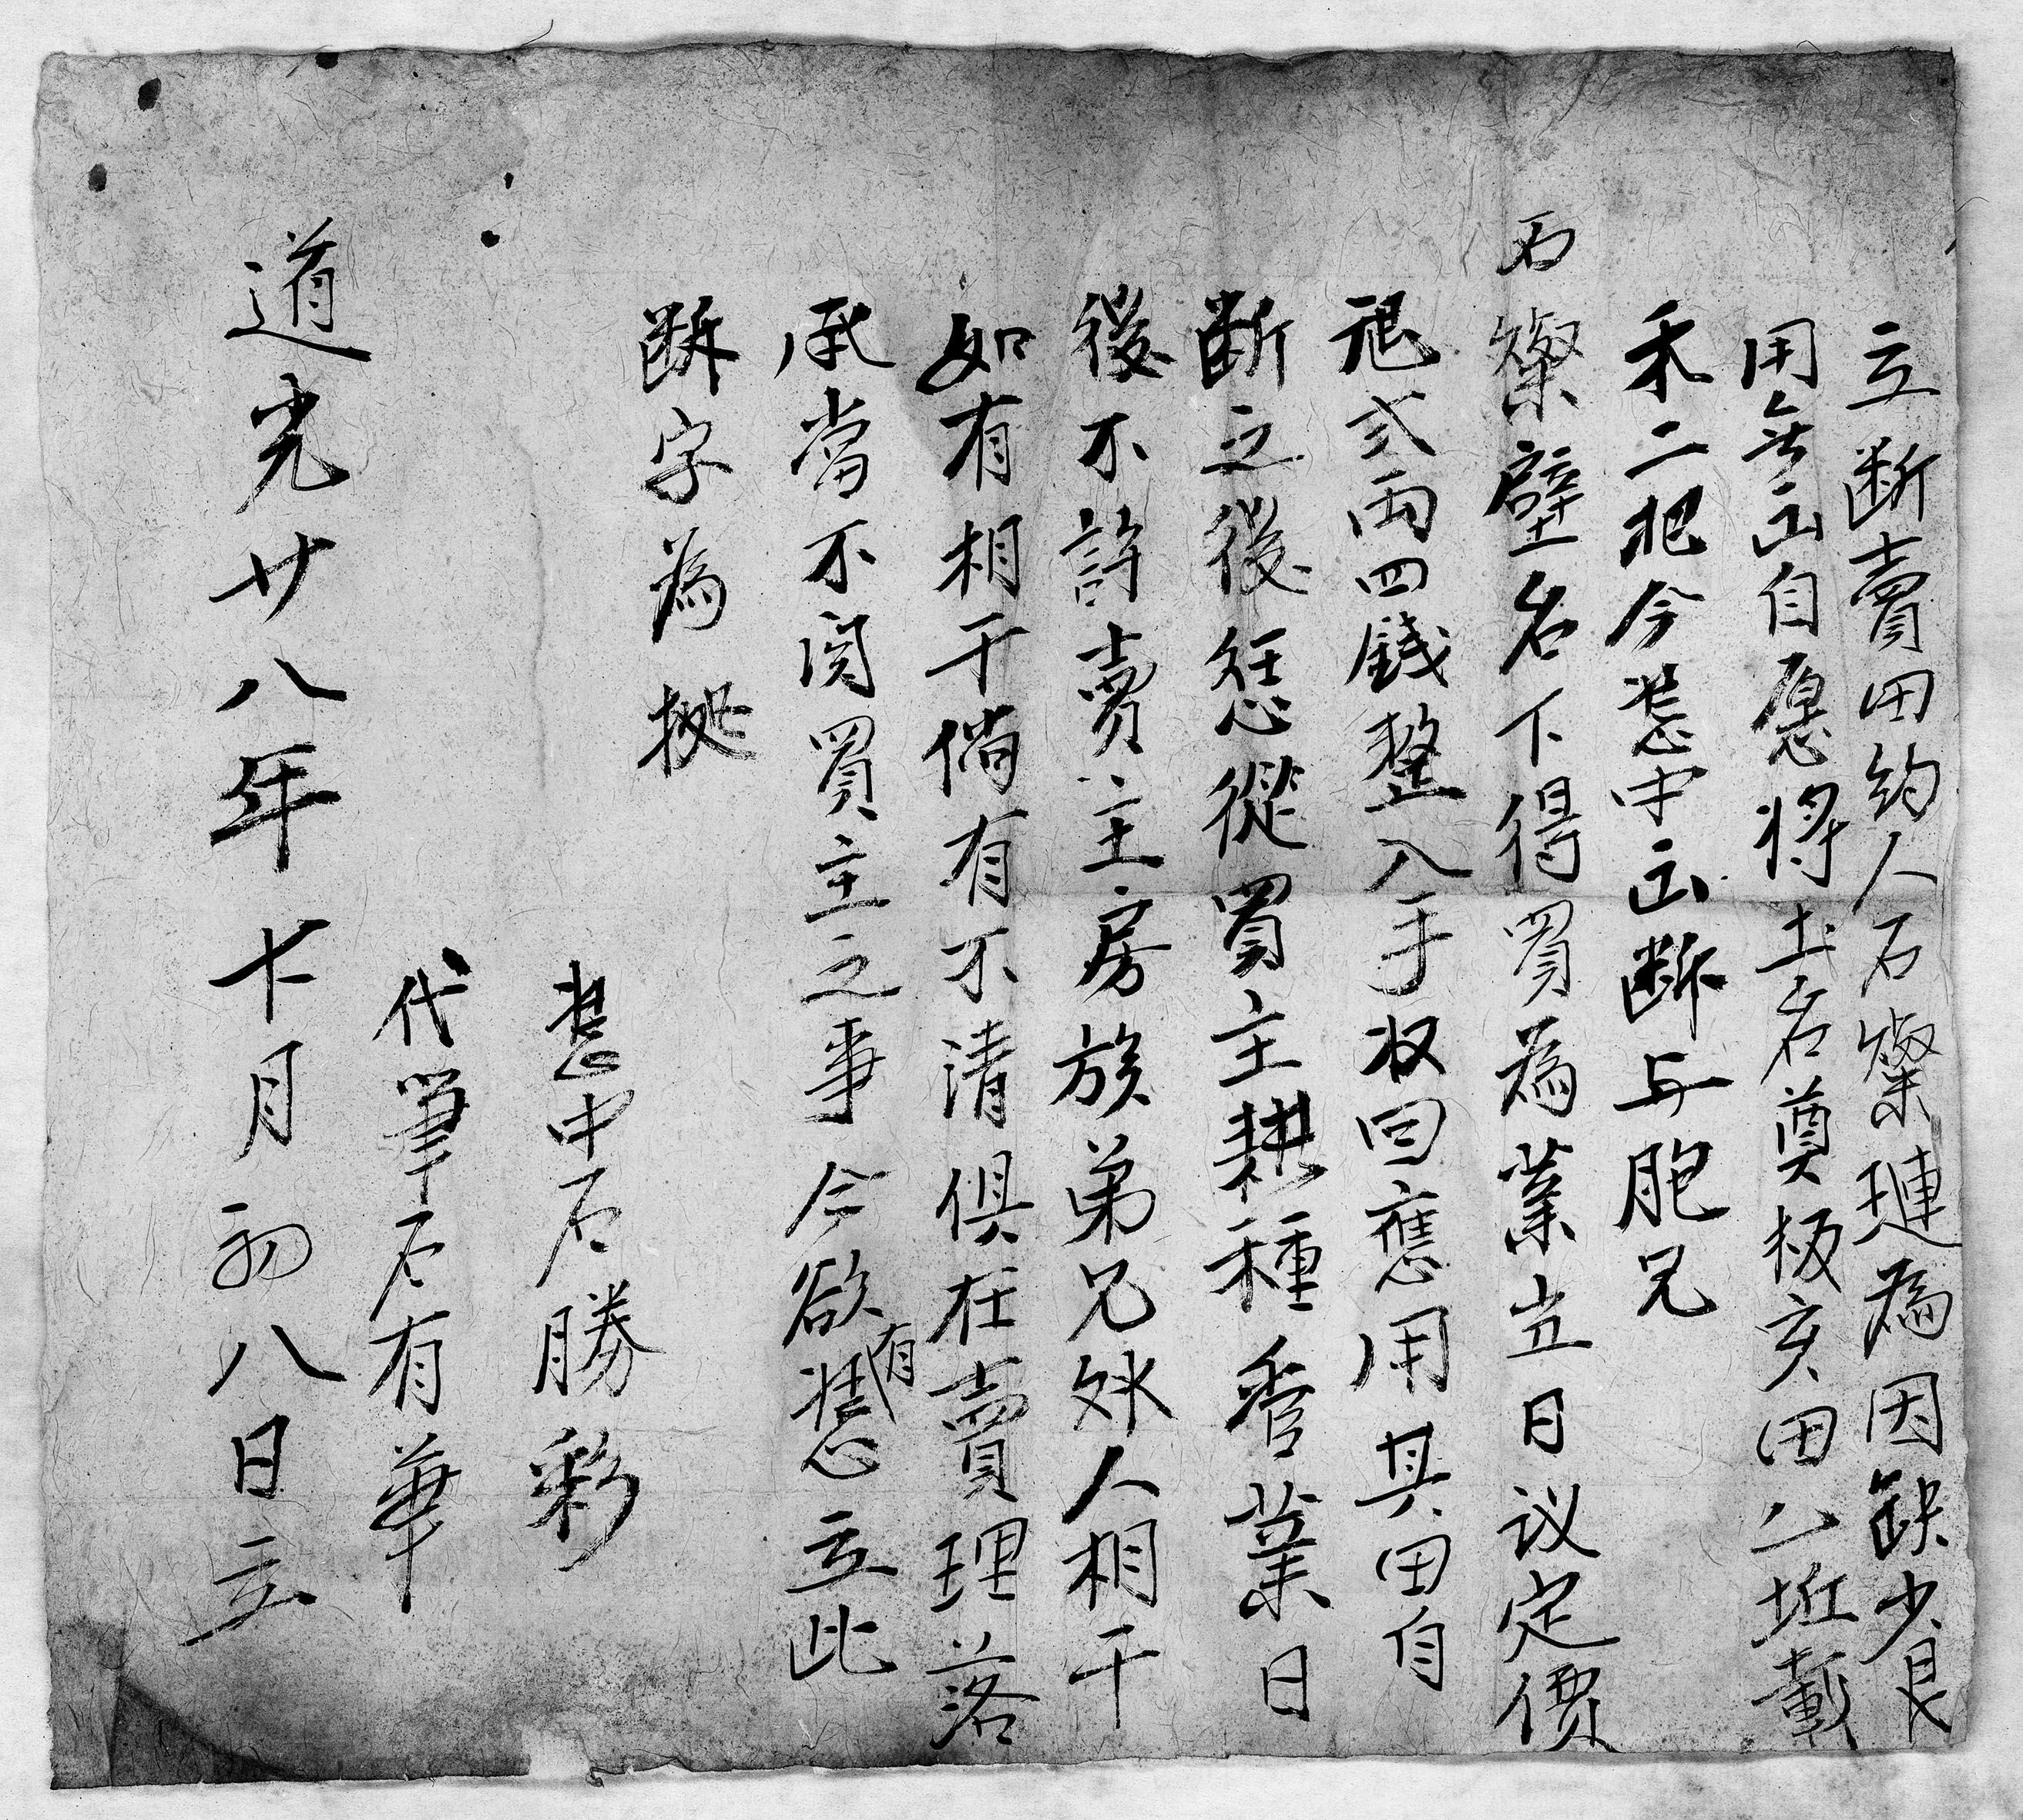 立断賣田約人石燦璉為因缺少艮
用無出自愿將土名奠板亥田一坵載
禾二把今憑中出断与胞兄
石燦壁名下得買為業当日议定價
艮弍両四錢整入手收回應用其田自
断之後恁從買主耕種管業日
後不許賣主房族弟兄外人相干
如有相干倘有不清俱在賣理落
承當不関買主之事今欲有憑立此
断字為㨿
憑中石勝彩
代筆石有華
道光廿八年十月初八日立